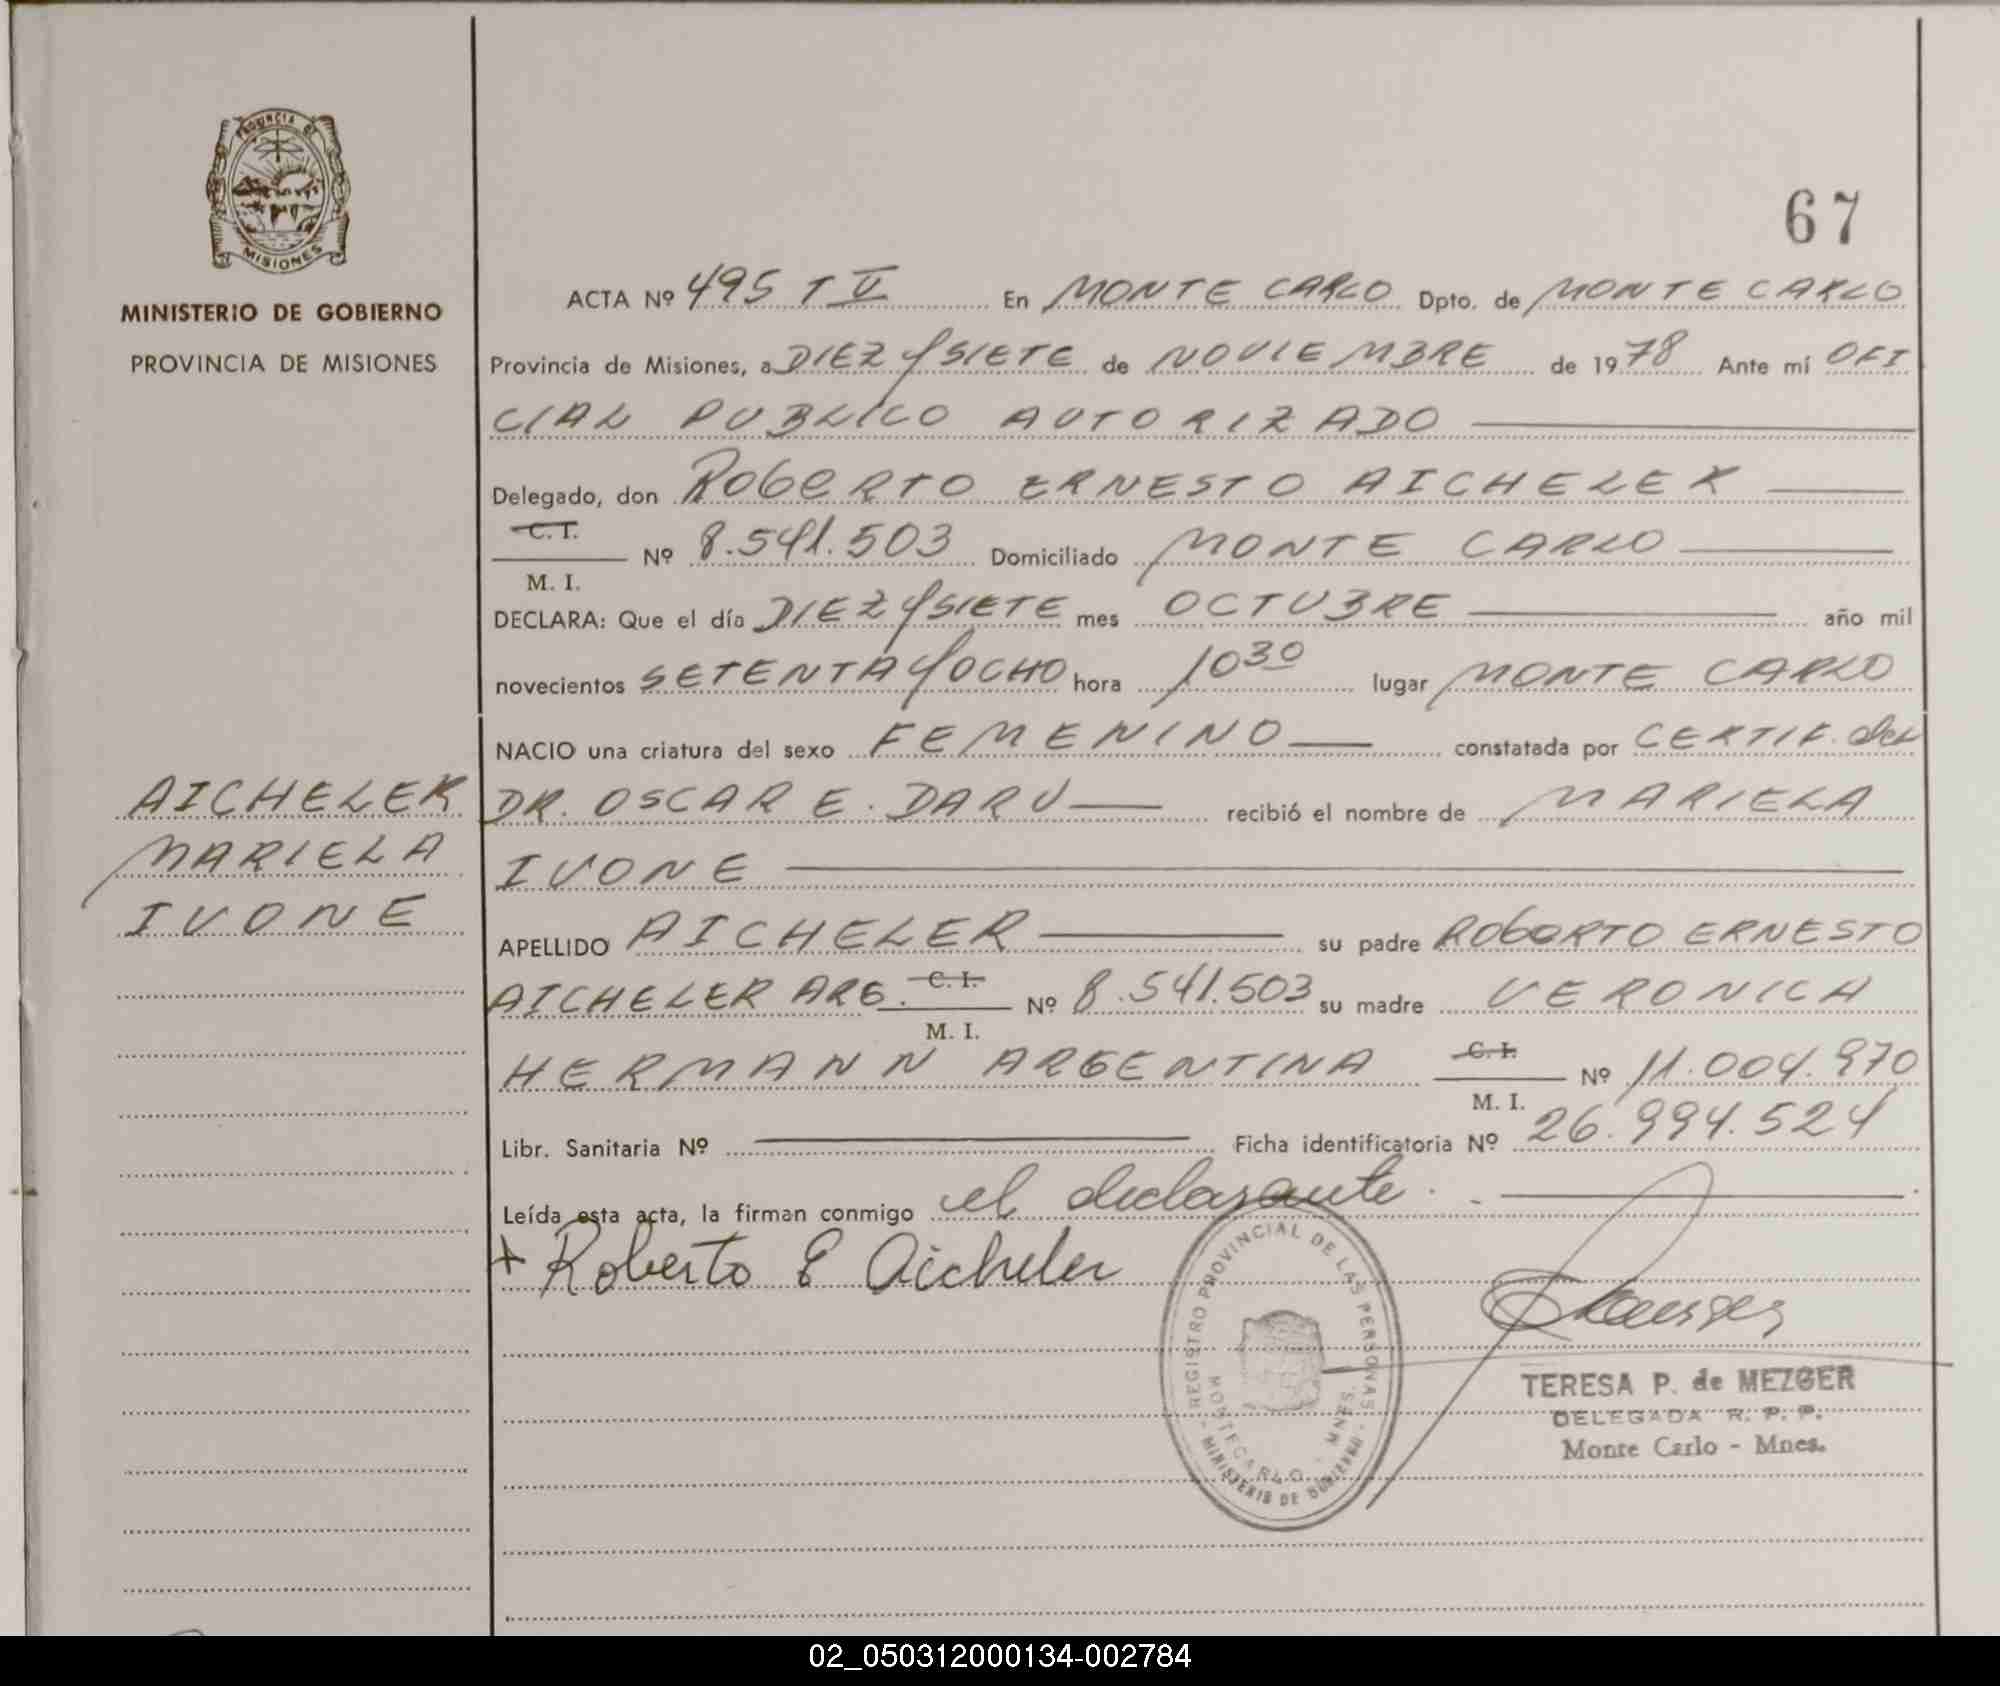 PROVINCIA DE
MISIONES
MINISTERIO DE GOBIERNO
PROVINCIA DE MISIONES
AICHELER
MARIELA
IVONE
67
ACTA Nº 495 T V En MONTE CARLO Dpto. de MONTE CARLO
Provincia de Misiones, a DIEZ y SIETE de NOVIEMBRE de 1978 Ante mí OFI
CIAL PUBLICO AUTORIZADO
Delegado, don ROBERTO ERNESTO AICHELER
C. I.
M. I. Nº 8.541.503 Domiciliado MONTE CARLO
DECLARA: Que el día DIEZ y SIETE mes OCTUBRE año mil
novecientos SETENTA y OCHO hora 10 30 lugar MONTE CARLO
NACIO una criatura del sexo FEMENINO constatada por CERTIF. del
DR. OSCAR E. DARU recibió el nombre de MARIELA
IVONE
APELLIDO AICHELER su padre ROBERTO ERNESTO
AICHELER ARG. C. I. M. I. Nº 8.541.503 su madre VERONICA
HERMANN ARGENTINA C. I. M. I. Nº 11.004.970
Libr. Sanitaria Nº Ficha identificatoria Nº 26.994.524
Leída esta acta, la firman conmigo el declarante.
+ Roberto E Aicheler
REGISTRO PROVINCIAL DE LAS PERSONAS
MONTECARLO - MNES.
MINISTERIO DE GOBIERNO
TERESA P. de MEZGER
DELEGADA R. P. P.
Monte Carlo - Mnes.
02_050312000134-002784